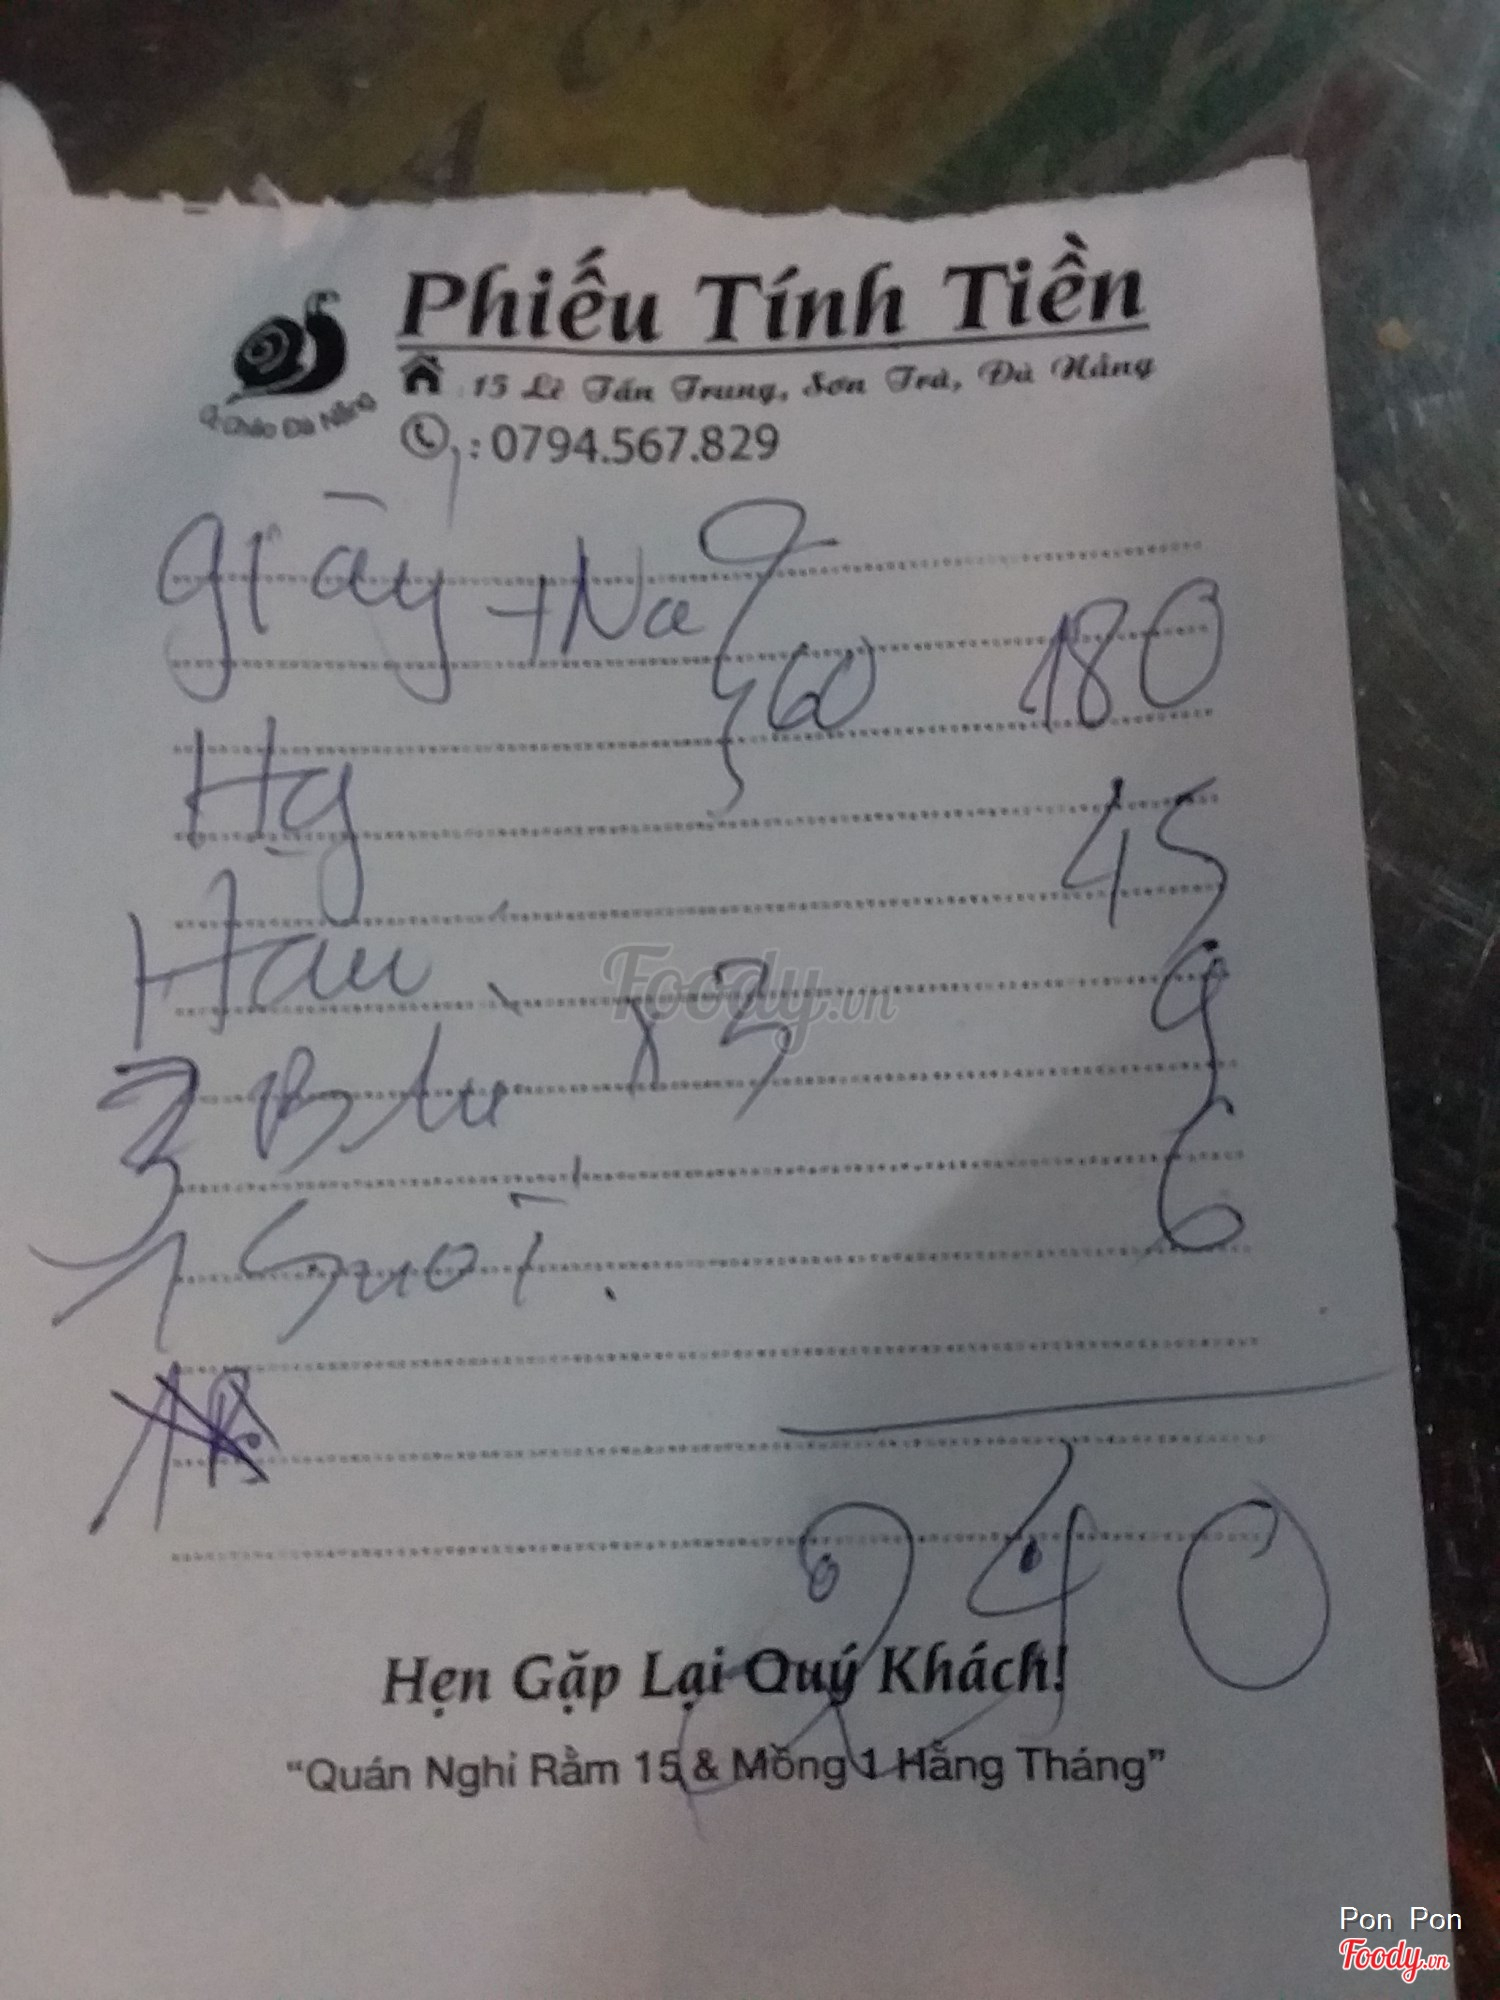 Phiếu Tính Tiền
15 Lê Tấn Trung, Sơn Trà, Đà Nẵng
Đà Nẵng
: 0794.567.829
giày + Na
60 180
Hg
Hàu 45
3 x 3 9
1 Suối. 6
Foody.vn
240
Hẹn Gặp Lại Quý Khách!
“Quán Nghỉ Rằm 15 & Mồng 1 Hằng Tháng”
Pon Pon
Foody.vn